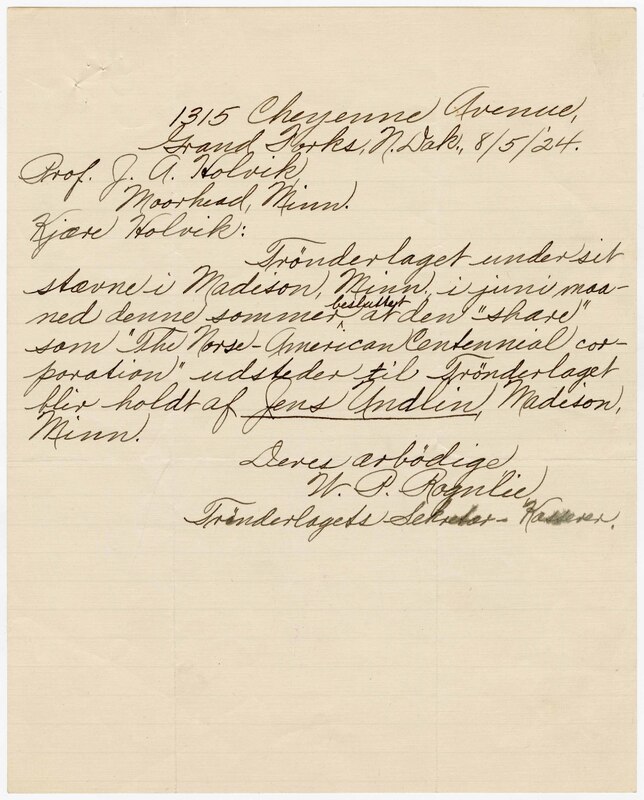 1315 Cheyenne Avenue,
Grand Forks, N. Dak., 8/5/'24.
Prof. J. A. Holvik,
Moorhead, Minn.
Kjære Holvik:
Trönderlaget under sit
stævne i Madison, Minn. i juni maa-
ned denne sommer besluttet at den "share"
som "The Norse-American Centennial cor-
poration" udsteder til Trönderlaget
blir holdt af Jens Undlin, Madison,
Minn.
Deres ærbödige
W. P. Rognlie,
Trönderlagets Sekretær-Kasserer.